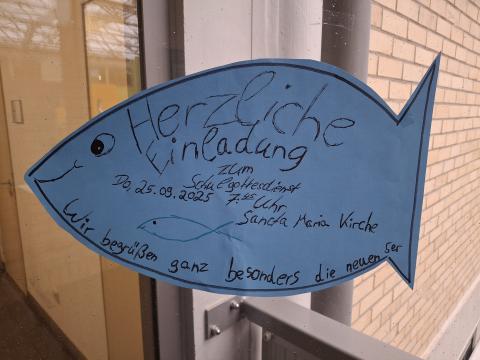 Herzliche
Einladung
zum
Schulgottesdienst
Do, 25.09.2025 7.45 Uhr
Sancta Maria Kirche
Wir begrüßen ganz besonders die neuen 5er